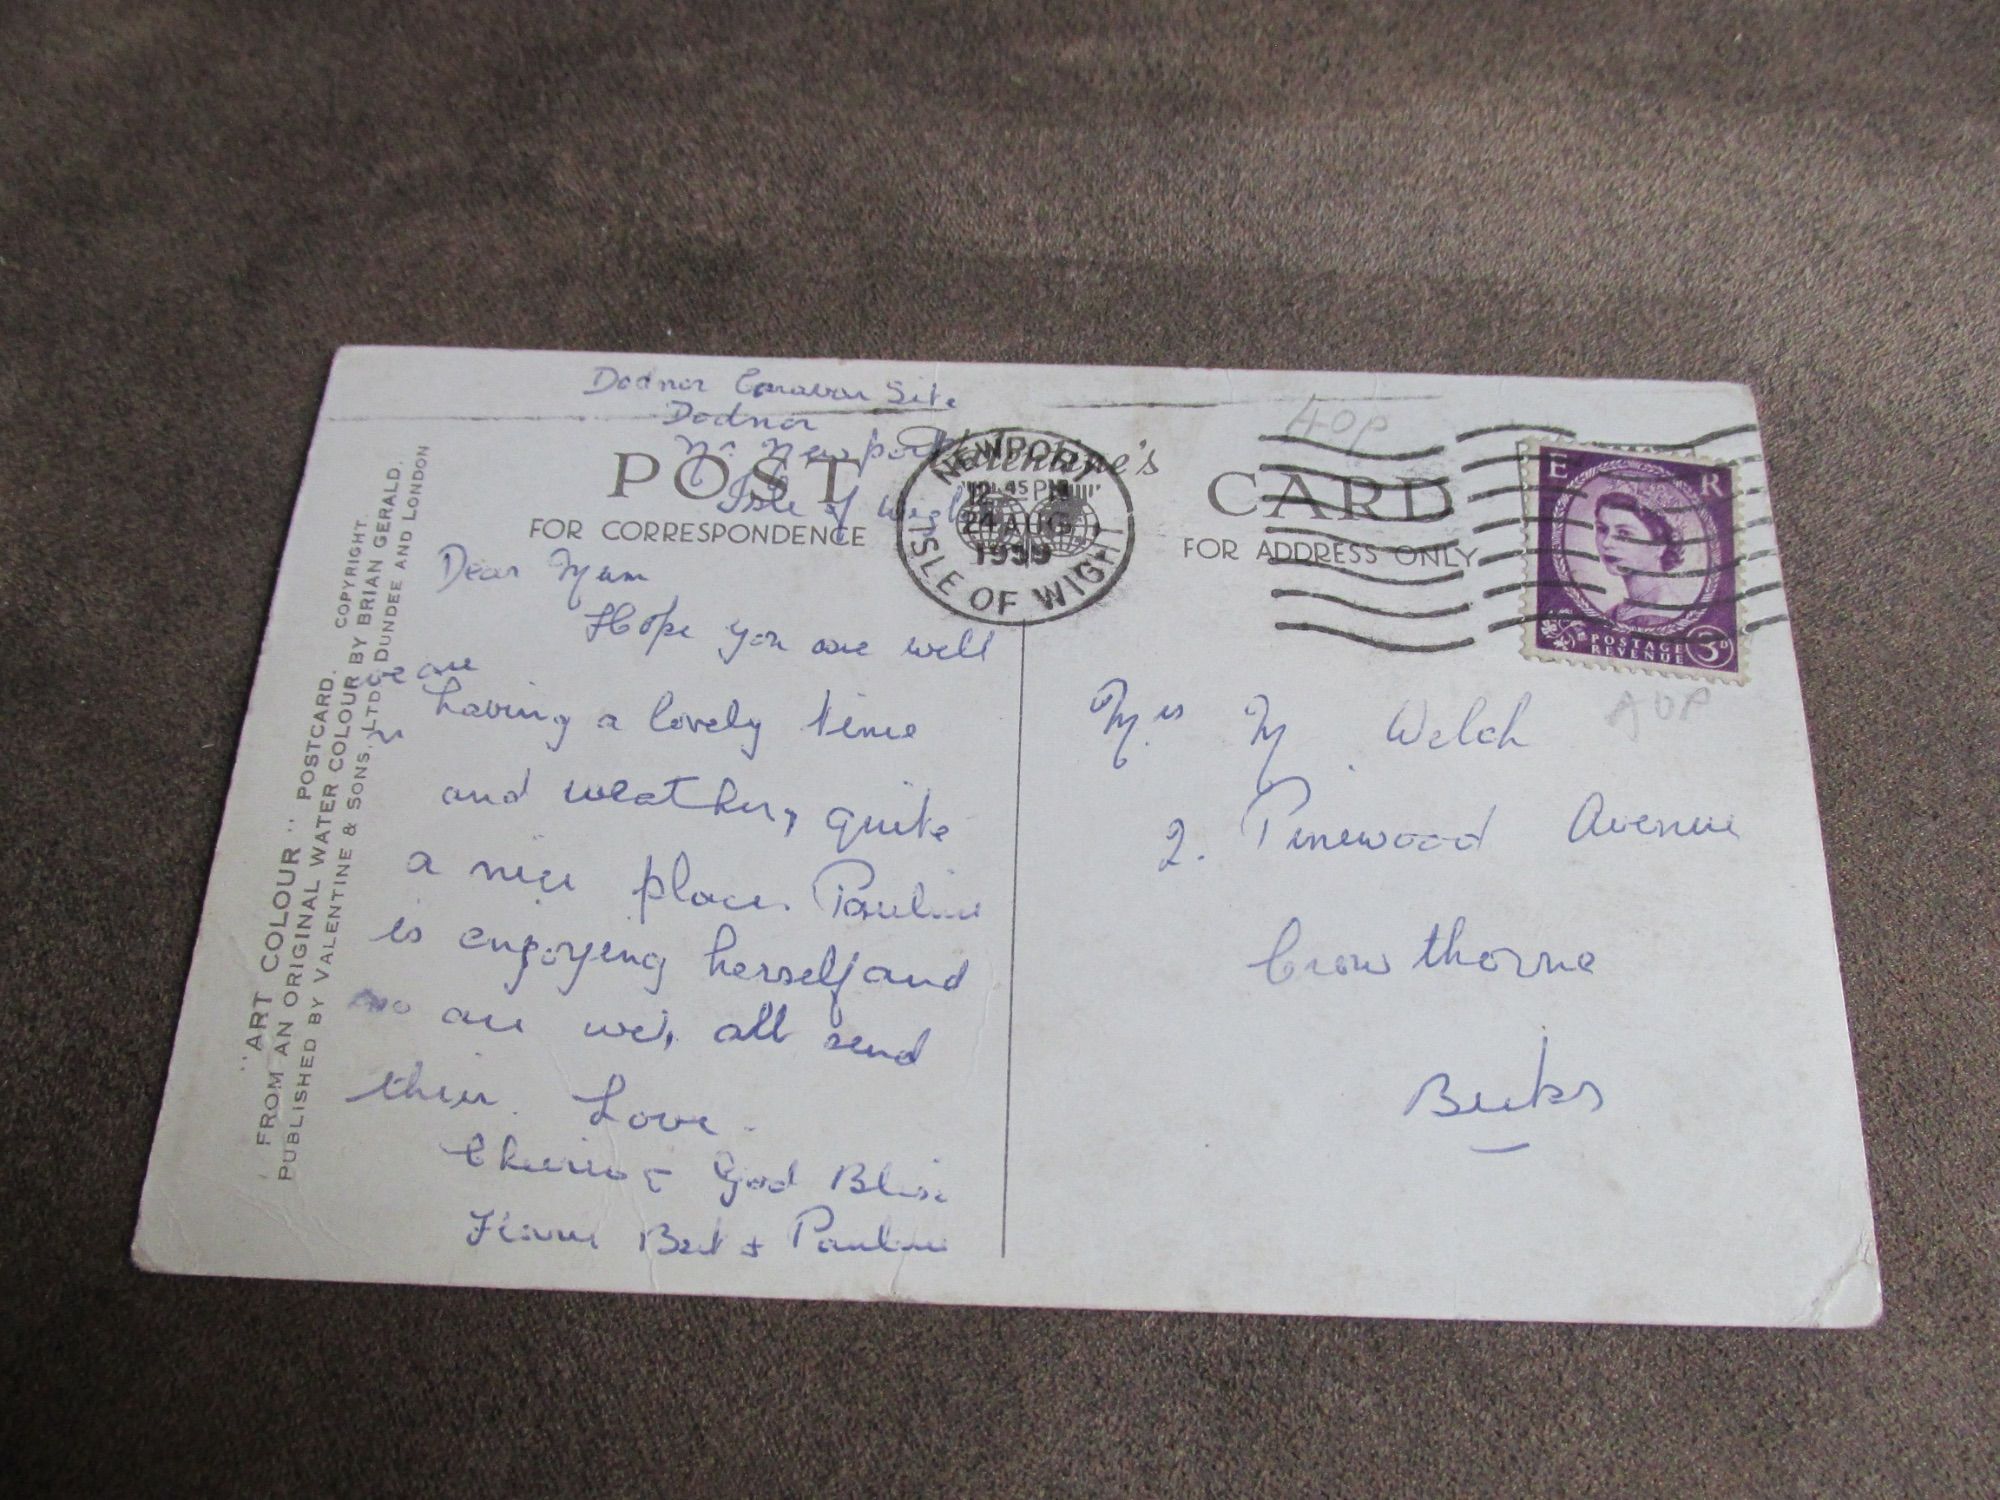 Dodnor Caravan Site
Dodnor
Nr Newport
Isle of Wight
POST
FOR CORRESPONDENCE
Valentine's
CARD
FOR ADDRESS ONLY
NEWPORT
12 45 PM
24 AUG
1959
ISLE OF WIGHT
40P
E R
POSTAGE
REVENUE
3D
40P
Dear Mum
Hope you are well
we are
having a lovely time
and weather, quite
a nice place. Pauline
is enjoying herself and
so are we, all send
their Love.
Cheerio & God Bless
From Bert + Pauline
Mrs M Welch
2. Pinewood Avenue
Crowthorne
Berks
"ART COLOUR" POSTCARD. COPYRIGHT.
FROM AN ORIGINAL WATER COLOUR BY BRIAN GERALD.
PUBLISHED BY VALENTINE & SONS, LTD. DUNDEE AND LONDON